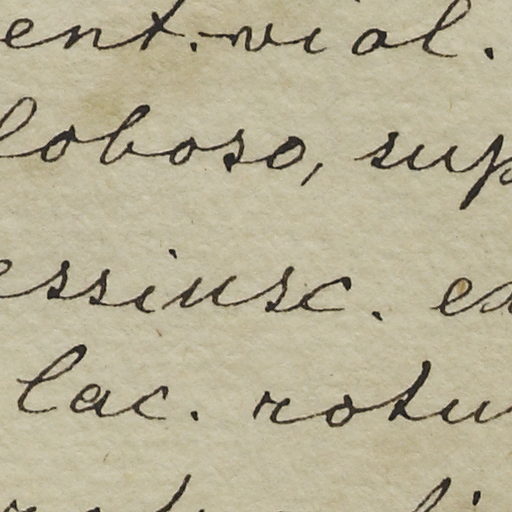 ent.-viol.
loboso, sup
essiusc. ex
lac. rotu